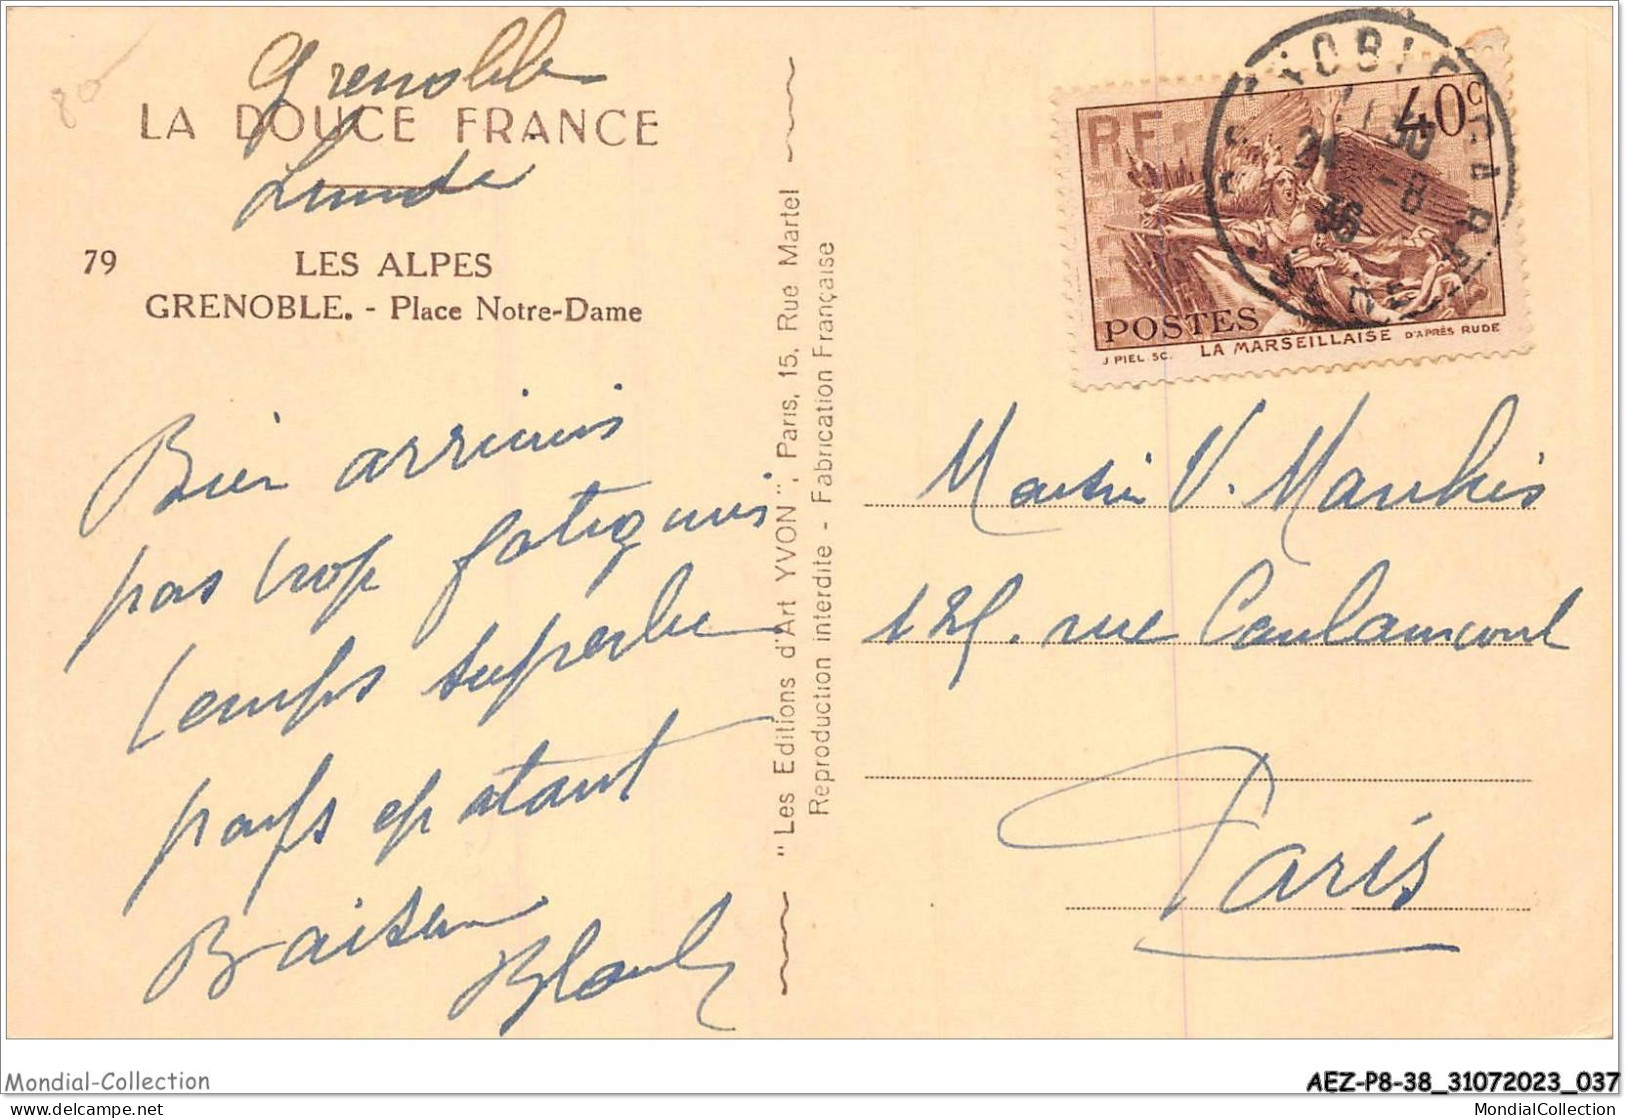 Grenoble
LA DOUCE FRANCE
79 LES ALPES
GRENOBLE. - Place Notre-Dame
Bien arrivés
pas trop fatigués
temps superbe
pays épatant
Baisers
"Les Editions d'Art YVON", Paris, 15, Rue Martel
Reproduction interdite - Fabrication Française
RF
40c
POSTES
J. PIEL. SC. LA MARSEILLAISE D'APRÈS RUDE
24 -8
36
V.
rue Caulaincourt
Paris
Mondial-Collection
AEZ-P8-38_31072023_037
delcampe.net
MondialCollection